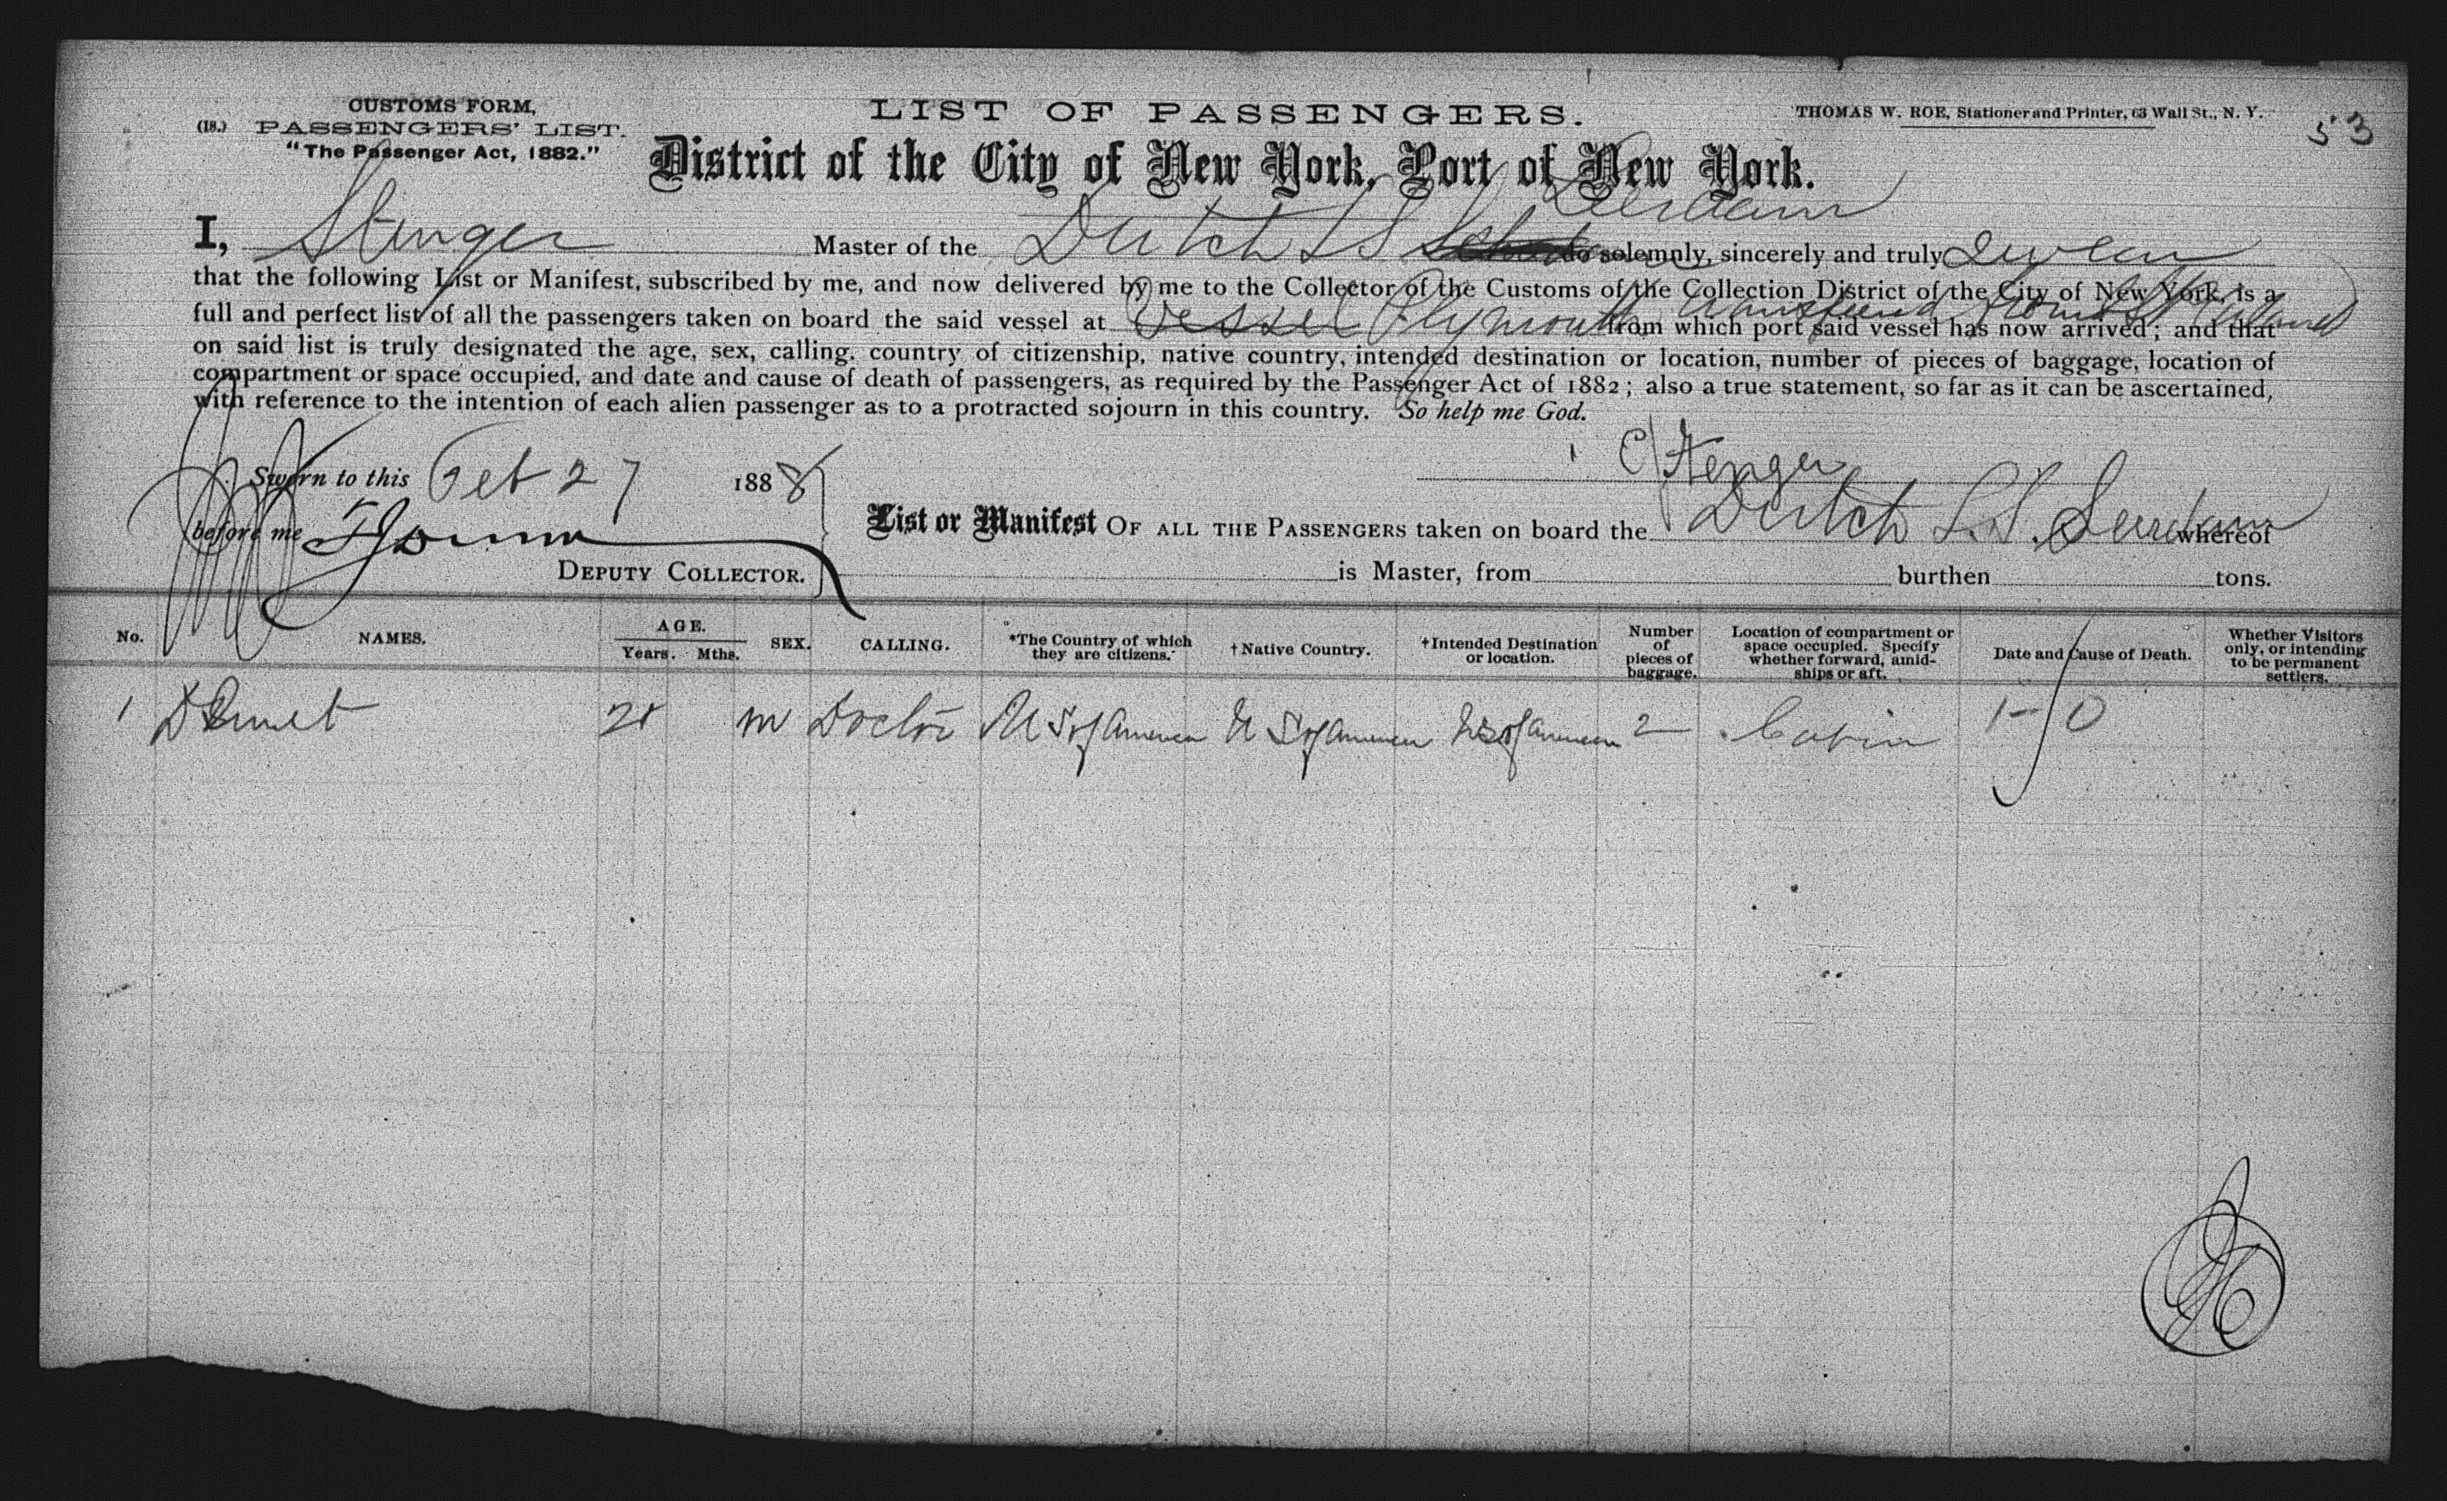 CUSTOMS FORM,
(18.) PASSENGERS' LIST.
"The Passenger Act, 1882."
LIST OF PASSENGERS.
THOMAS W. ROE, Stationer and Printer, 63 Wall St., N. Y.
53
District of the City of New York, Port of New York.
Leerdam
I, Stenger Master of the Dutch SS do solemnly, sincerely and truly swear
that the following List or Manifest, subscribed by me, and now delivered by me to the Collector of the Customs of the Collection District of the City of New York, is a
full and perfect list of all the passengers taken on board the said vessel at Vessel Plymouth from which port said vessel has now arrived; and that
on said list is truly designated the age, sex, calling, country of citizenship, native country, intended destination or location, number of pieces of baggage, location of
compartment or space occupied, and date and cause of death of passengers, as required by the Passenger Act of 1882; also a true statement, so far as it can be ascertained,
with reference to the intention of each alien passenger as to a protracted sojourn in this country. So help me God.
C Stenger
Sworn to this Oct 27 1888
before me
DEPUTY COLLECTOR.
List or Manifest OF ALL THE PASSENGERS taken on board the Dutch S.S. Leerdam whereof
is Master, from burthen tons.
No. NAMES. AGE. Years. Mths. SEX. CALLING. *The Country of which they are citizens. †Native Country. †Intended Destination or location. Number of pieces of baggage. Location of compartment or space occupied. Specify whether forward, amidships or aft. Date and Cause of Death. Whether Visitors only, or intending to be permanent settlers.
1 28 m Doctor U S of America U S of America U S of America 2 Cabin 1-0